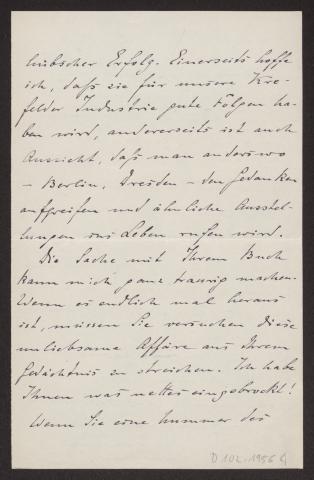 hübscher Erfolg. Einerseits hoffe
ich, daß sie für unsere Kre-
felder Industrie gute Folgen ha-
ben wird, andererseits ist auch
Aussicht, daß man anderswo
- Berlin, Dresden - den Gedanken
aufgreifen und ähnliche Ausstel-
lungen ins Leben rufen wird.
Die Sache mit Ihrem Buch
kann mich ganz traurig machen.
Wenn es endlich mal heraus
ist, müssen Sie versuchen diese
unliebsame Affäre aus Ihrem
Gedächtnis zu streichen. Ich habe
Ihnen was nettes eingebrockt!
Wenn Sie eine Nummer des
D 102.1956 G